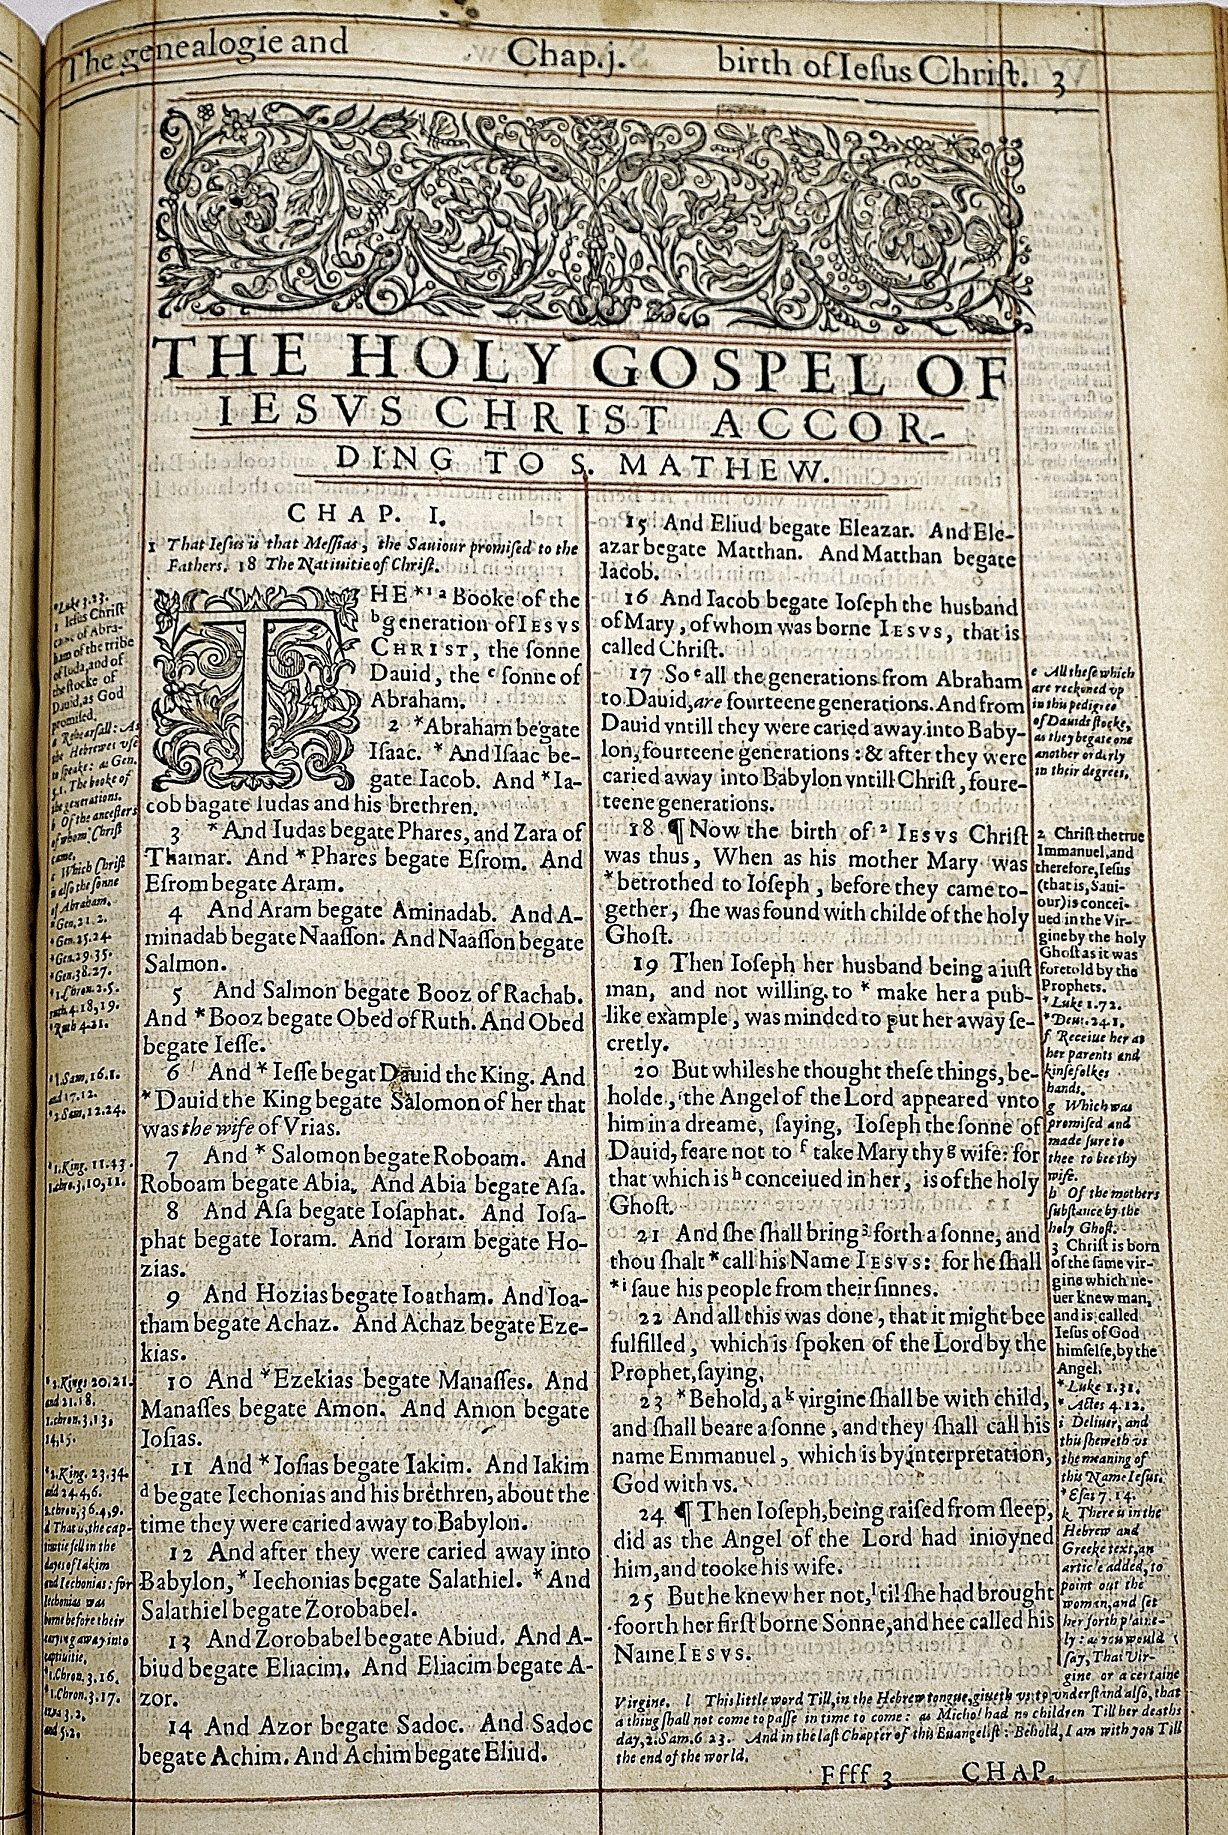 The genealogie and Chap.j. birth of Iesus Christ. 3
THE HOLY GOSPEL OF
IESVS CHRIST ACCOR-
DING TO S. MATHEW.
CHAP. I.
1 That Iesus is that Messias, the Sauiour promised to the
Fathers. 18 The Natiuitie of Christ.
THE *1 a Booke of the
b generation of IESVS
CHRIST, the sonne
Dauid, the c sonne of
Abraham.
2 *Abraham begate
Isaac. * And Isaac be-
gate Iacob. And *Ia-
cob bagate Iudas and his brethren.
3 *And Iudas begate Phares, and Zara of
Thamar. And * Phares begate Esrom. And
Esrom begate Aram.
4 And Aram begate Aminadab. And A-
minadab begate Naasson. And Naasson begate
Salmon.
5 And Salmon begate Booz of Rachab.
And * Booz begate Obed of Ruth. And Obed
begate Iesse.
6 And * Iesse begat Dauid the King. And
* Dauid the King begate Salomon of her that
was the wife of Vrias.
7 And * Salomon begate Roboam. And
Roboam begate Abia. And Abia begate Asa.
8 And Asa begate Iosaphat. And Iosa-
phat begate Ioram. And Ioram begate Ho-
zias.
9 And Hozias begate Ioatham. And Ioa-
tham begate Achaz. And Achaz begate Eze-
kias.
10 And * Ezekias begate Manasses. And
Manasses begate Amon. And Amon begate
Iosias.
11 And * Iosias begate Iakim. And Iakim
d begate Iechonias and his brethren, about the
time they were caried away to Babylon.
12 And after they were caried away into
Babylon, * Iechonias begate Salathiel. * And
Salathiel begate Zorobabel.
13 And Zorobabel begate Abiud. And A-
biud begate Eliacim. And Eliacim begate A-
zor.
14 And Azor begate Sadoc. And Sadoc
begate Achim. And Achim begate Eliud.
*Luke 3.23.
1 Iesus Christ
came of Abra-
ham of the tribe
of Iuda, and of
the stocke of
Dauid, as God
promised.
a Rehearsall: As
the Hebrewes vse
to speake: as Gen.
5.1. The booke of
the generations.
b Of the ancesters
of whom Christ
came.
c Which Christ
is also the sonne
of Abraham.
*Gen. 21.2.
*Gen. 25.24.
*Gen. 29.35.
*Gen. 38.27.
*1.Chron. 2.5.
ruth 4.18,19.
*Ruth 4.21.
*1.Sam. 16.1.
and 17.12.
*2.Sam. 12.24.
*1.King. 11.43.
1.chro. 3.10,11.
*2.Kings 20.21.
and 21.18.
1.chron. 3.13,
14,15.
*2.King. 23.34.
and 24.4,6.
2.chron. 36.4,9.
d That is, the cap-
tiuitie fell in the
dayes of Iakim
and Iechonias: for
Iechonias was
borne before their
carying away into
captiuitie.
*1.Chron. 3.16.
*1.Chron. 3.17.
ezra 3.2,
and 5.2.
15 And Eliud begate Eleazar. And Ele-
azar begate Matthan. And Matthan begate
Iacob.
16 And Iacob begate Ioseph the husband
of Mary, of whom was borne IESVS, that is
called Christ.
17 So e all the generations from Abraham
to Dauid, are fourteene generations. And from
Dauid vntill they were caried away into Baby-
lon, fourteene generations: & after they were
caried away into Babylon vntill Christ, foure-
teene generations.
18 ¶ Now the birth of 2 IESVS Christ
was thus, When as his mother Mary was
* betrothed to Ioseph, before they came to-
gether, she was found with childe of the holy
Ghost.
19 Then Ioseph her husband being a iust
man, and not willing to * make her a pub-
like example, was minded to put her away se-
cretly.
20 But whiles he thought these things, be-
holde, the Angel of the Lord appeared vnto
him in a dreame, saying, Ioseph the sonne of
Dauid, feare not to f take Mary thy g wife: for
that which is h conceiued in her, is of the holy
Ghost.
21 And she shall bring 3 forth a sonne, and
thou shalt * call his Name IESVS: for he shall
* i saue his people from their sinnes.
22 And all this was done, that it might bee
fulfilled, which is spoken of the Lord by the
Prophet, saying,
23 * Behold, a k virgine shall be with child,
and shall beare a sonne, and they shall call his
name Emmanuel, which is by interpretation,
God with vs.
24 ¶ Then Ioseph, being raised from sleep,
did as the Angel of the Lord had inioyned
him, and tooke his wife.
25 But he knew her not, l til she had brought
foorth her first borne Sonne, and hee called his
Name IESVS.
e All these which
are reckoned vp
in this pedigree
of Dauids stocke,
as they begate one
another orderly
in their degrees.
2 Christ the true
Immanuel, and
therefore, Iesus
(that is, Saui-
our) is concei-
ued in the Vir-
gine by the holy
Ghost as it was
foretold by the
Prophets.
*Luke 1.72.
*Deut. 24.1.
f Receiue her at
her parents and
kinsefolkes
hands.
g Which was
promised and
made sure to
thee to bee thy
wife.
h Of the mothers
substance by the
holy Ghost.
3 Christ is born
of the same vir-
gine which ne-
uer knew man,
and is called
Iesus of God
himselfe, by the
Angel.
*Luke 1.31.
*Actes 4.12.
i Deliuer, and
this sheweth vs
the meaning of
this Name Iesus.
*Esai 7.14.
k There is in the
Hebrew and
Greeke text, an
article added, to
point out the
woman, and set
her forth plaine-
ly: as you would
say, That Vir-
gine, or a certaine
Virgine. l This little word Till, in the Hebrew tongue, giueth vs to vnderstand also, that
a thing shall not come to passe in time to come: as Michol had no children Till her deaths
day, 2.Sam. 6 23. And in the last Chapter of this Euangelist: Behold, I am with you Till
the end of the world.
Ffff 3 CHAP.